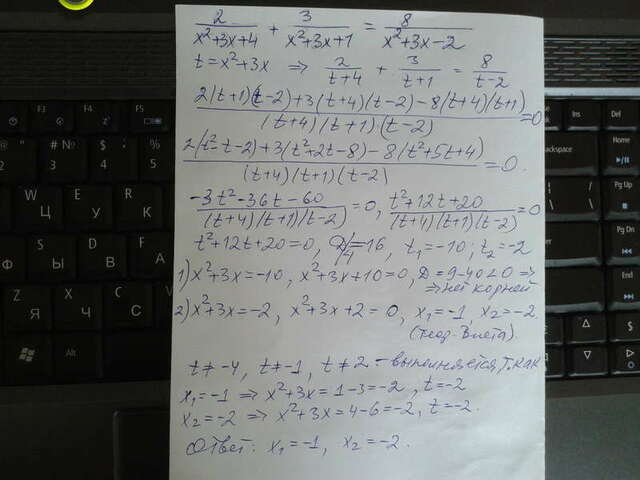 2/(x²+3x+4) + 3/(x²+3x+1) = 8/(x²+3x-2)
t = x²+3x ⇒ 2/(t+4) + 3/(t+1) = 8/(t-2)
(2(t+1)(t-2)+3(t+4)(t-2)-8(t+4)(t+1))/((t+4)(t+1)(t-2)) = 0
(2(t²-t-2)+3(t²+2t-8)-8(t²+5t+4))/((t+4)(t+1)(t-2)) = 0.
(-3t²-36t-60)/((t+4)(t+1)(t-2)) = 0, (t²+12t+20)/((t+4)(t+1)(t-2)) = 0
t²+12t+20=0, D/4=16, t₁=-10; t₂=-2
1) x²+3x=-10, x²+3x+10=0, D=9-40<0 ⇒
⇒ нет корней
2) x²+3x=-2, x²+3x+2=0, x₁=-1, x₂=-2
(теор. Виета)
t≠-4, t≠-1, t≠2 - выполняется, т.как
x₁=-1 ⇒ x²+3x=1-3=-2, t=-2
x₂=-2 ⇒ x²+3x=4-6=-2, t=-2.
Ответ: x₁=-1, x₂=-2.
F3
F4
F5
Ins
Del
Home
Pg Up
Pg Dn
End
Enter
Shift